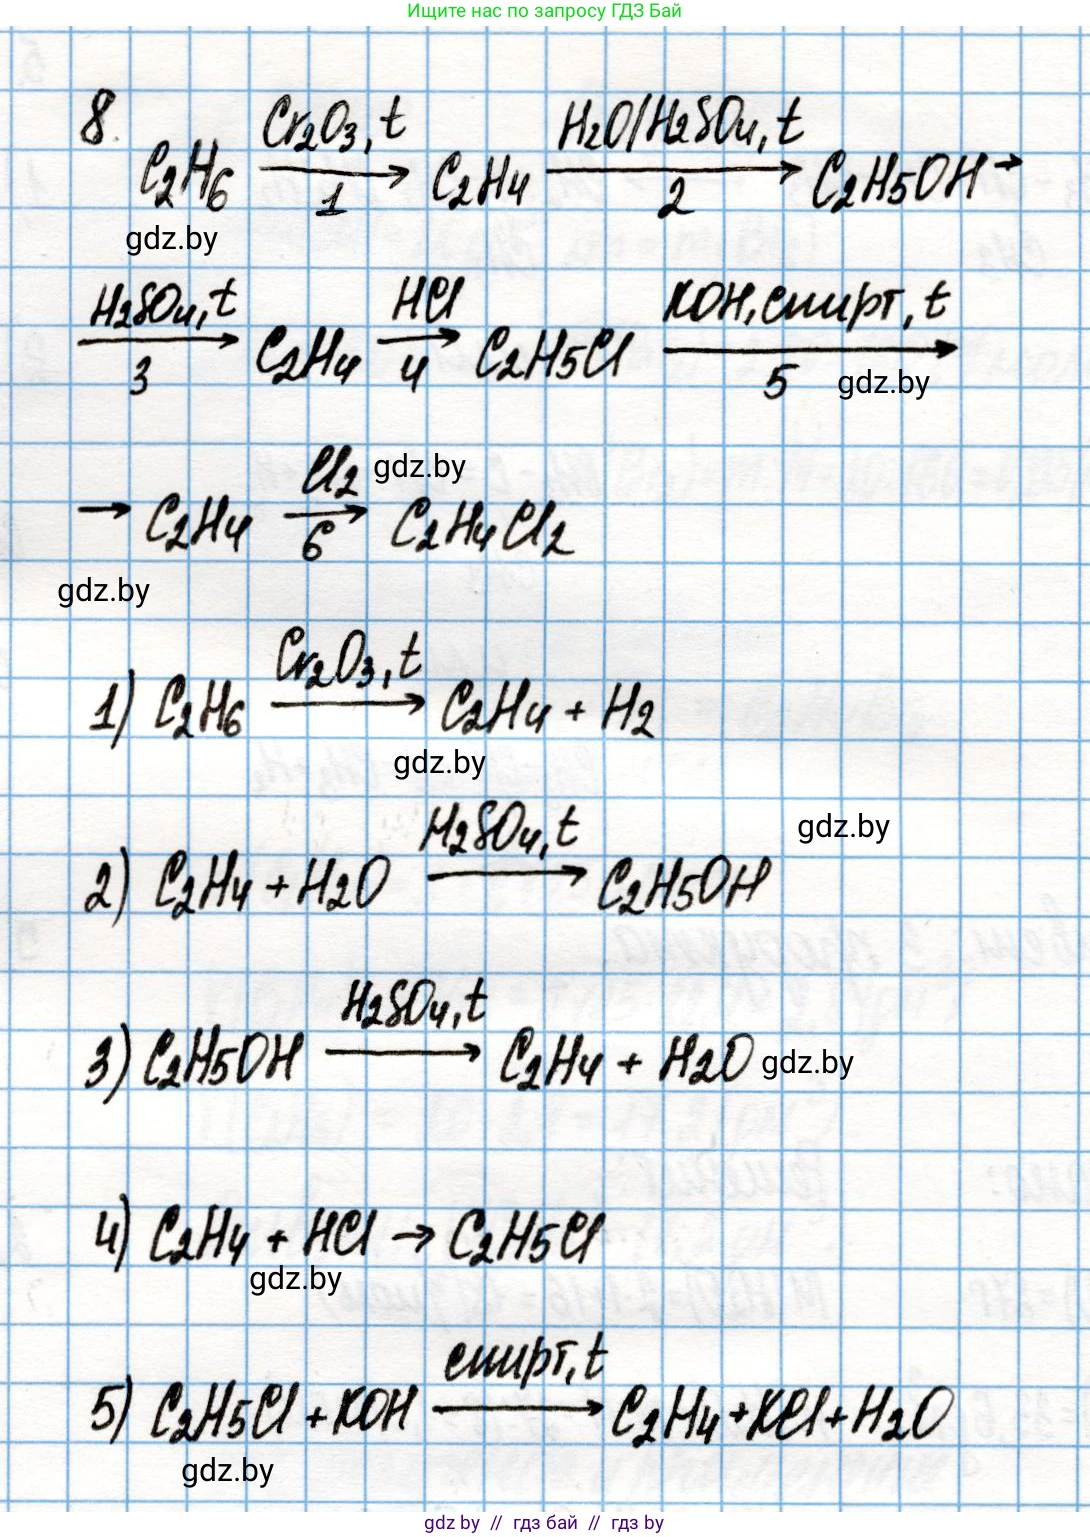 Ищите нас по запросу ГДЗ Бай
8. C2H6 Cr2O3, t 1 → C2H4 H2O/H2SO4, t 2 → C2H5OH →
gdz.by
H2SO4, t 3 → C2H4 HCl 4 → C2H5Cl KOH, спирт, t 5 →
gdz.by
→ C2H4 Cl2 6 → C2H4Cl2
gdz.by
gdz.by
1) C2H6 Cr2O3, t → C2H4 + H2
gdz.by
gdz.by
2) C2H4 + H2O H2SO4, t → C2H5OH
3) C2H5OH H2SO4, t → C2H4 + H2O
gdz.by
4) C2H4 + HCl → C2H5Cl
gdz.by
5) C2H5Cl + KOH спирт, t → C2H4 + KCl + H2O
gdz.by
gdz by // гдз бай // гдз by